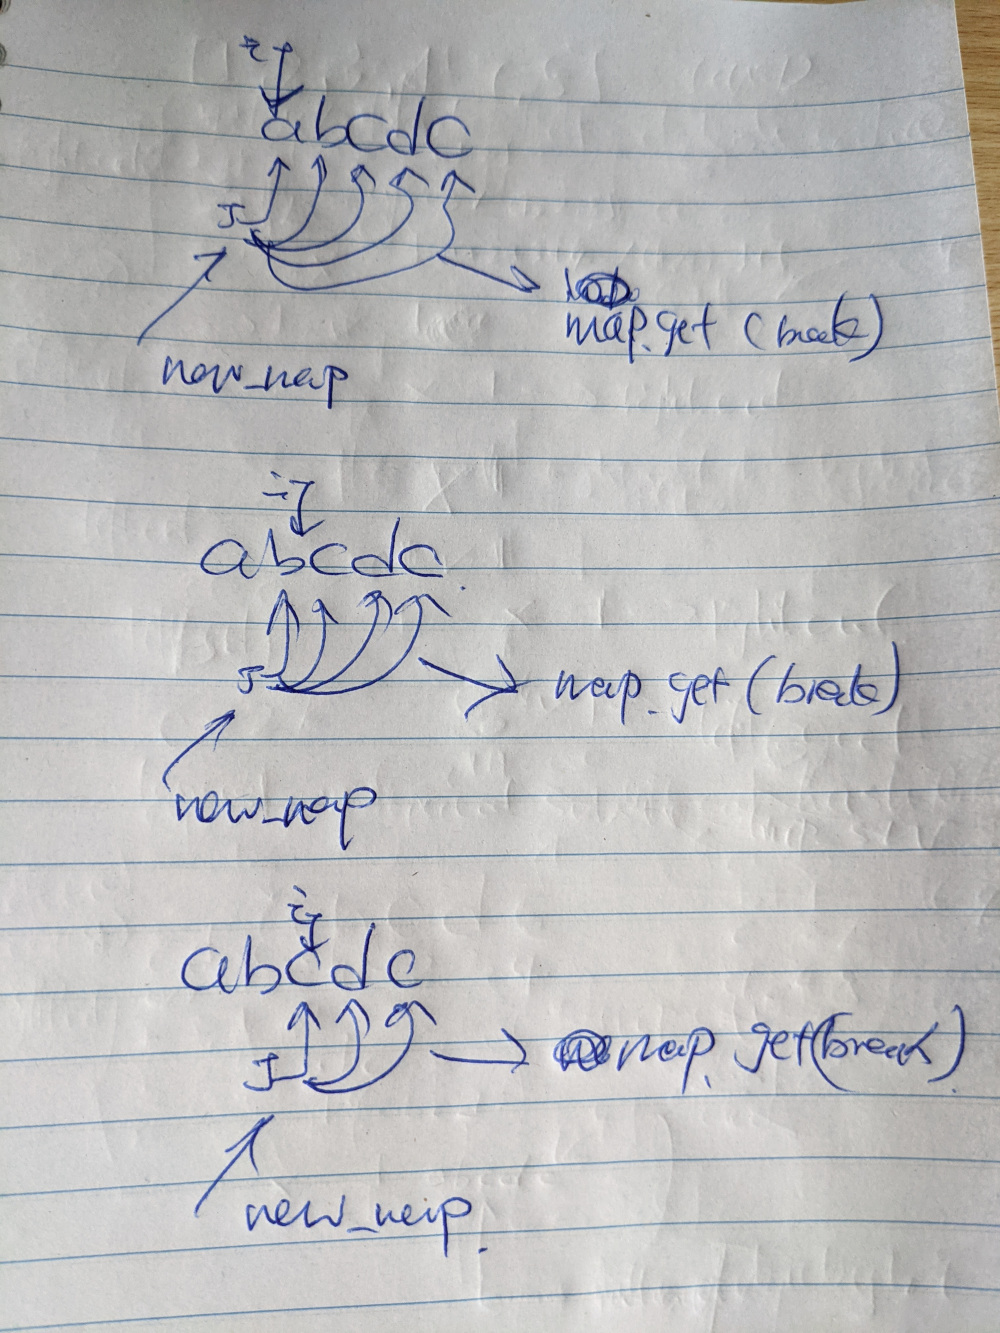 i
abcdc
J
map.get (break)
new_map
i
abcdc
J
map.get (break)
new_map
i
abcdc
J
map.get(break)
new_map.